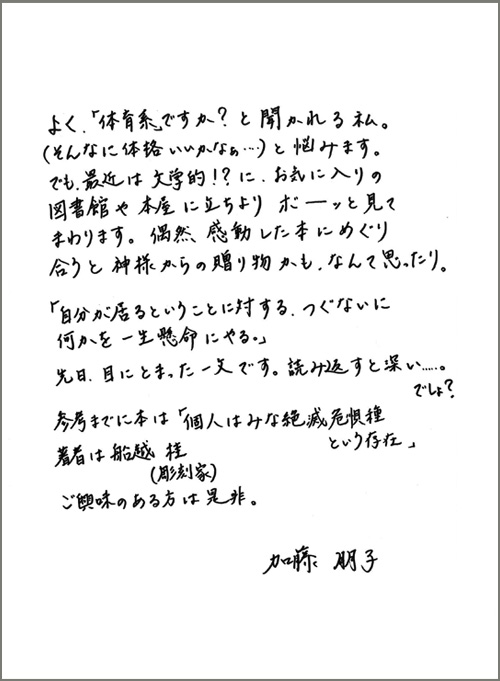 よく、「体育系ですか？と聞かれる私。
(そんなに体格いいかなぁ…)と悩みます。
でも、最近は文学的！？に、お気に入りの
図書館や本屋に立ちより ボーッと見て
まわります。偶然、感動した本にめぐり
合うと神様からの贈り物かも、なんて思ったり。
「自分が居るということに対する、つぐないに
何かを一生懸命にやる。」
先日、目にとまった一文です。読み返すと深い……。
でしょ？
参考までに本は「個人はみな絶滅危惧種
という存在」
著者は船越 桂
(彫刻家)
ご興味のある方は是非。
加藤 朋子